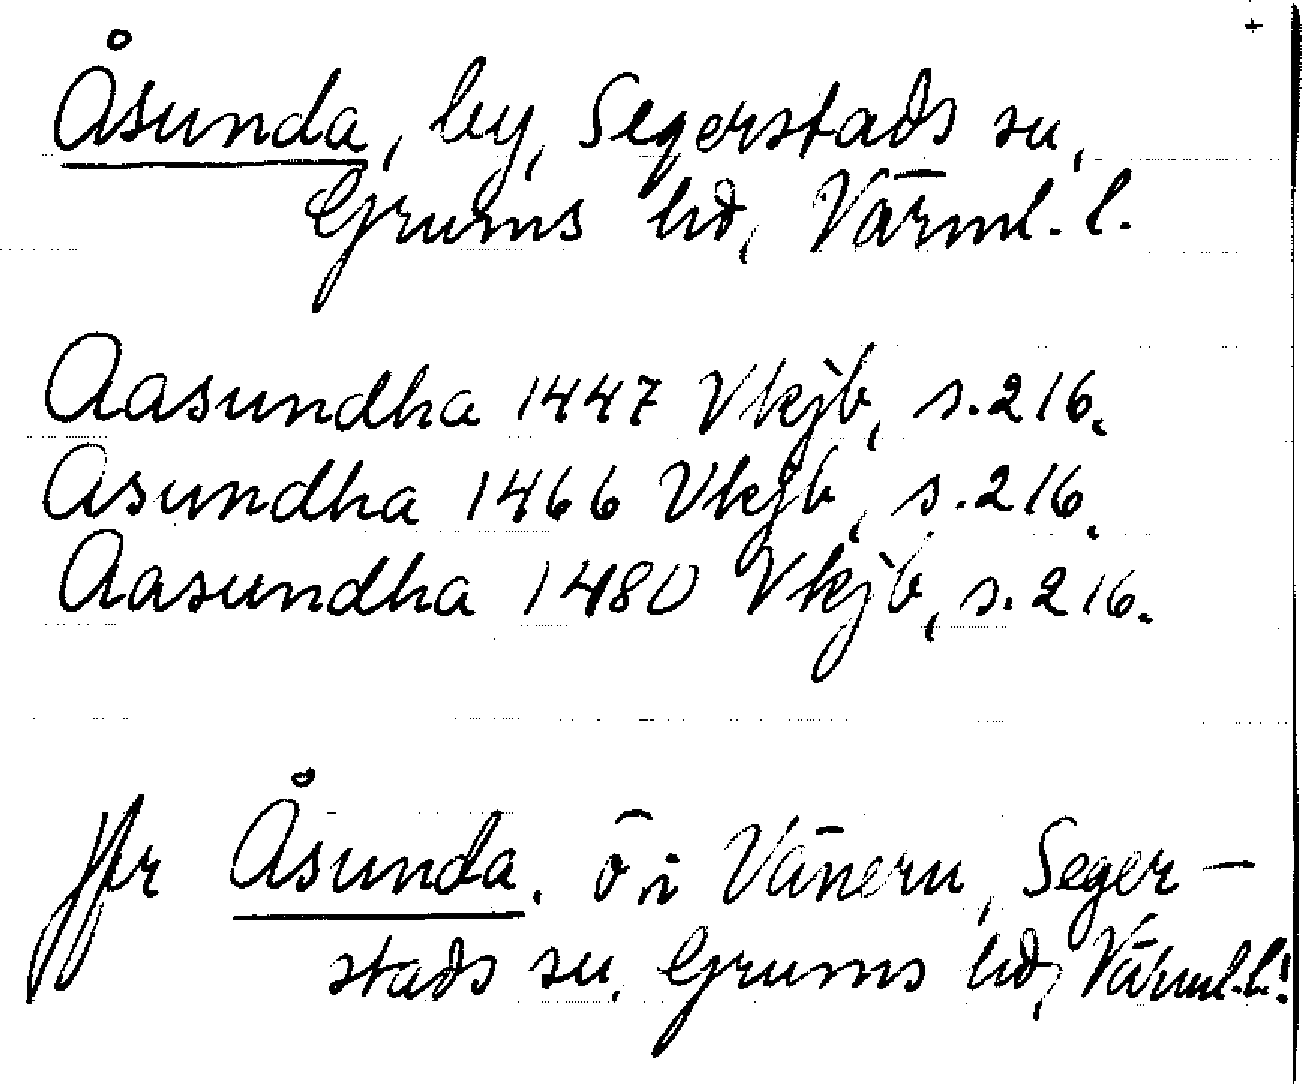 +
Åsunda, by, Segerstads sn,
Grums hd, Värml. l.
Aasundha 1447 Vkjb, s. 216.
Asundha 1466 Vkjb, s. 216.
Aasundha 1480 Vkjb, s. 216.
jfr Åsunda. ö i Vänern, Seger-
stads sn, Grums hd, Värml. l.!